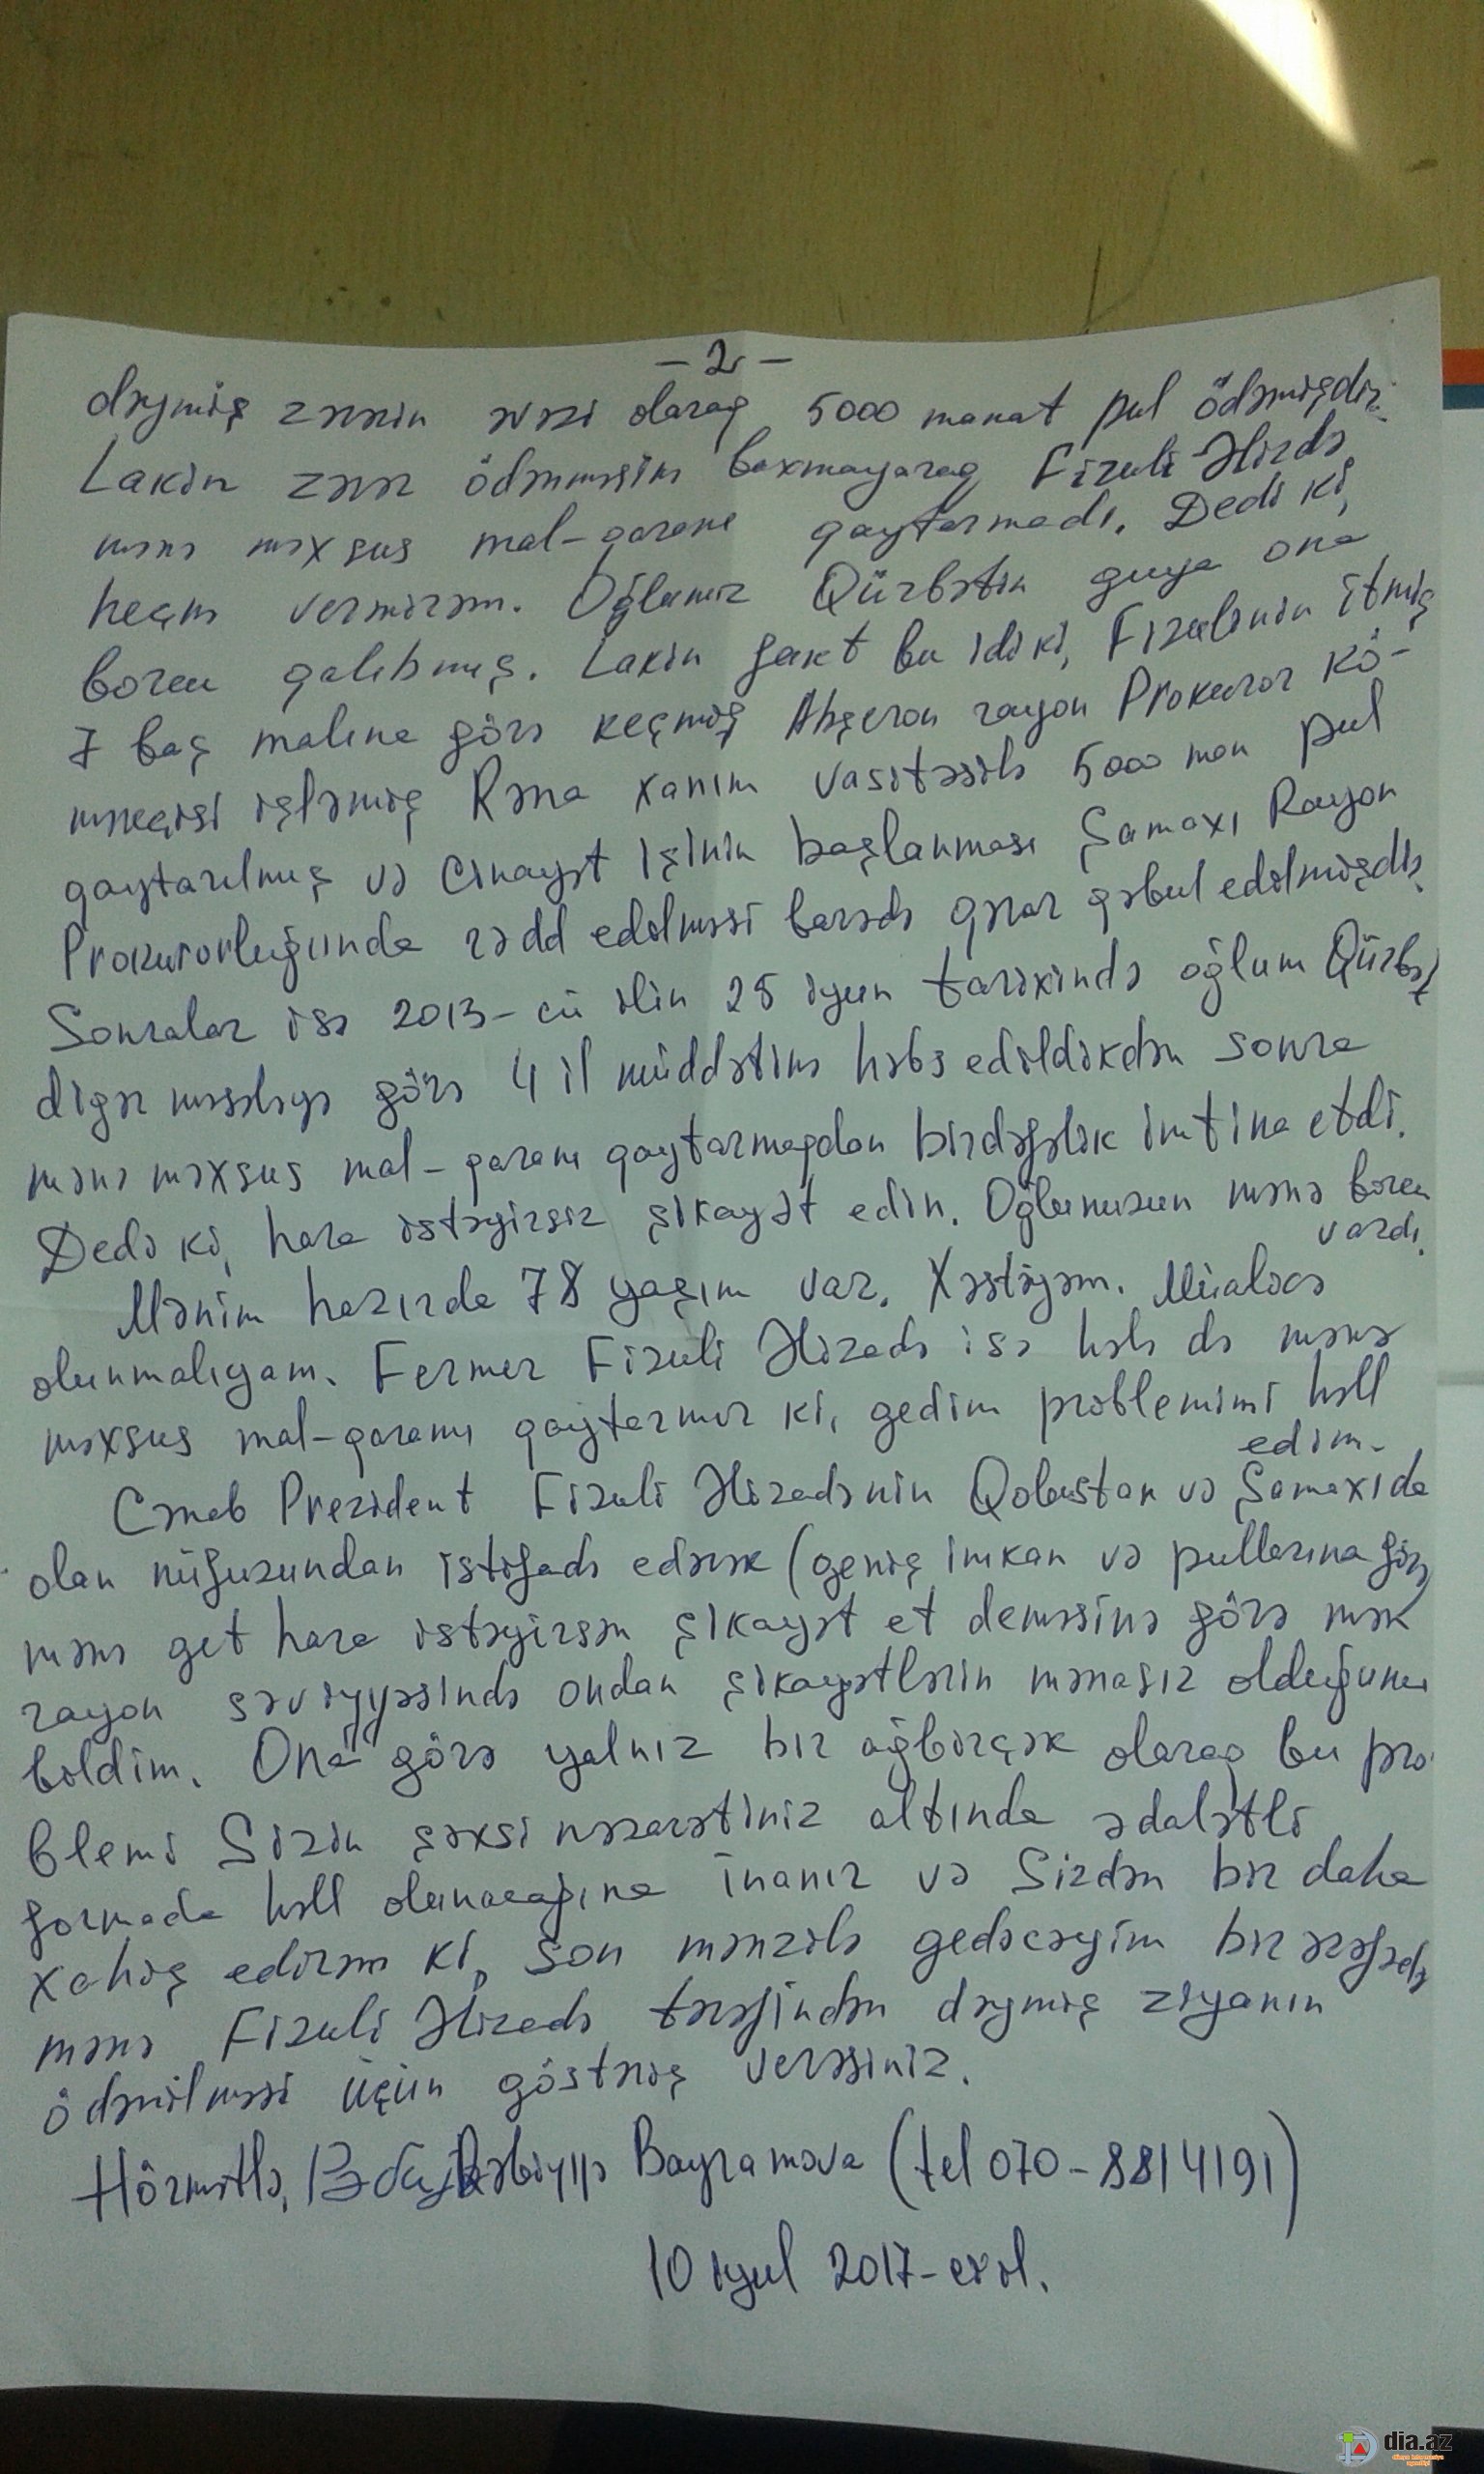 - 2 -
dəymiş zərərin əvəzi olaraq 5000 manat pul ödəmişdir.
Lakin zərər ödənməsinə baxmayaraq Fizuli Əlizadə
mənə məxsus mal-qaranı qaytarmadı. Dedi ki,
heçnə vermirəm. Oğlunuz Qürbətin guya ona
borcu qalıbmış. Lakin fakt bu idi ki, Fizulinin itmiş
7 baş malına görə keçmiş Abşeron rayon Prokuror kö-
məkçisi işləmiş Rəna xanım vasitəsilə 5000 man pul
qaytarılmış və Cinayət işinin başlanması Şamaxı Rayon
Prokurorluğunda rədd edilməsi barədə qərar qəbul edilmişdir.
Sonralar isə 2013-cü ilin 25 iyun tarixində oğlum Qürbət
digər məsələyə görə 4 il müddətinə həbs edildikdən sonra
mənə məxsus mal-qaranı qaytarmaqdan birdəfəlik imtina etdi.
Dedi ki, hara istəyirsiz şikayət edin. Oğlunuzun mənə borcu
vardı.
Mənim hazırda 78 yaşım var. Xəstəyəm. Müalicə
olunmalıyam. Fermer Fizuli Əlizadə isə hələ də mənə
məxsus mal-qaramı qaytarmır ki, gedim problemimi həll
edim.
Cənab Prezident Fizuli Əlizadənin Qobustan və Şamaxıda
olan nüfuzundan istifadə edərək (geniş imkan və pullarına görə)
mənə get hara istəyirsən şikayət et deməsinə görə mən
rayon səviyyəsində ondan şikayətlərin mənasız olduğunu
bildim. Ona görə yalnız bir ağbirçək olaraq bu pro
blemi Sizin şəxsi nəzarətiniz altında ədalətli
formada həll olunacağına inanır və Sizdən bir daha
xahiş edirəm ki, son mənzilə gedəcəyim bir ərəfədə
mənə Fizuli Əlizadə tərəfindən dəymiş ziyanın
ödənilməsi üçün göstəriş verəsiniz.
Hörmətlə, Rəbiyyə Bayramova (tel 070-8814191)
10 iyul 2017-ci il.
dia.az